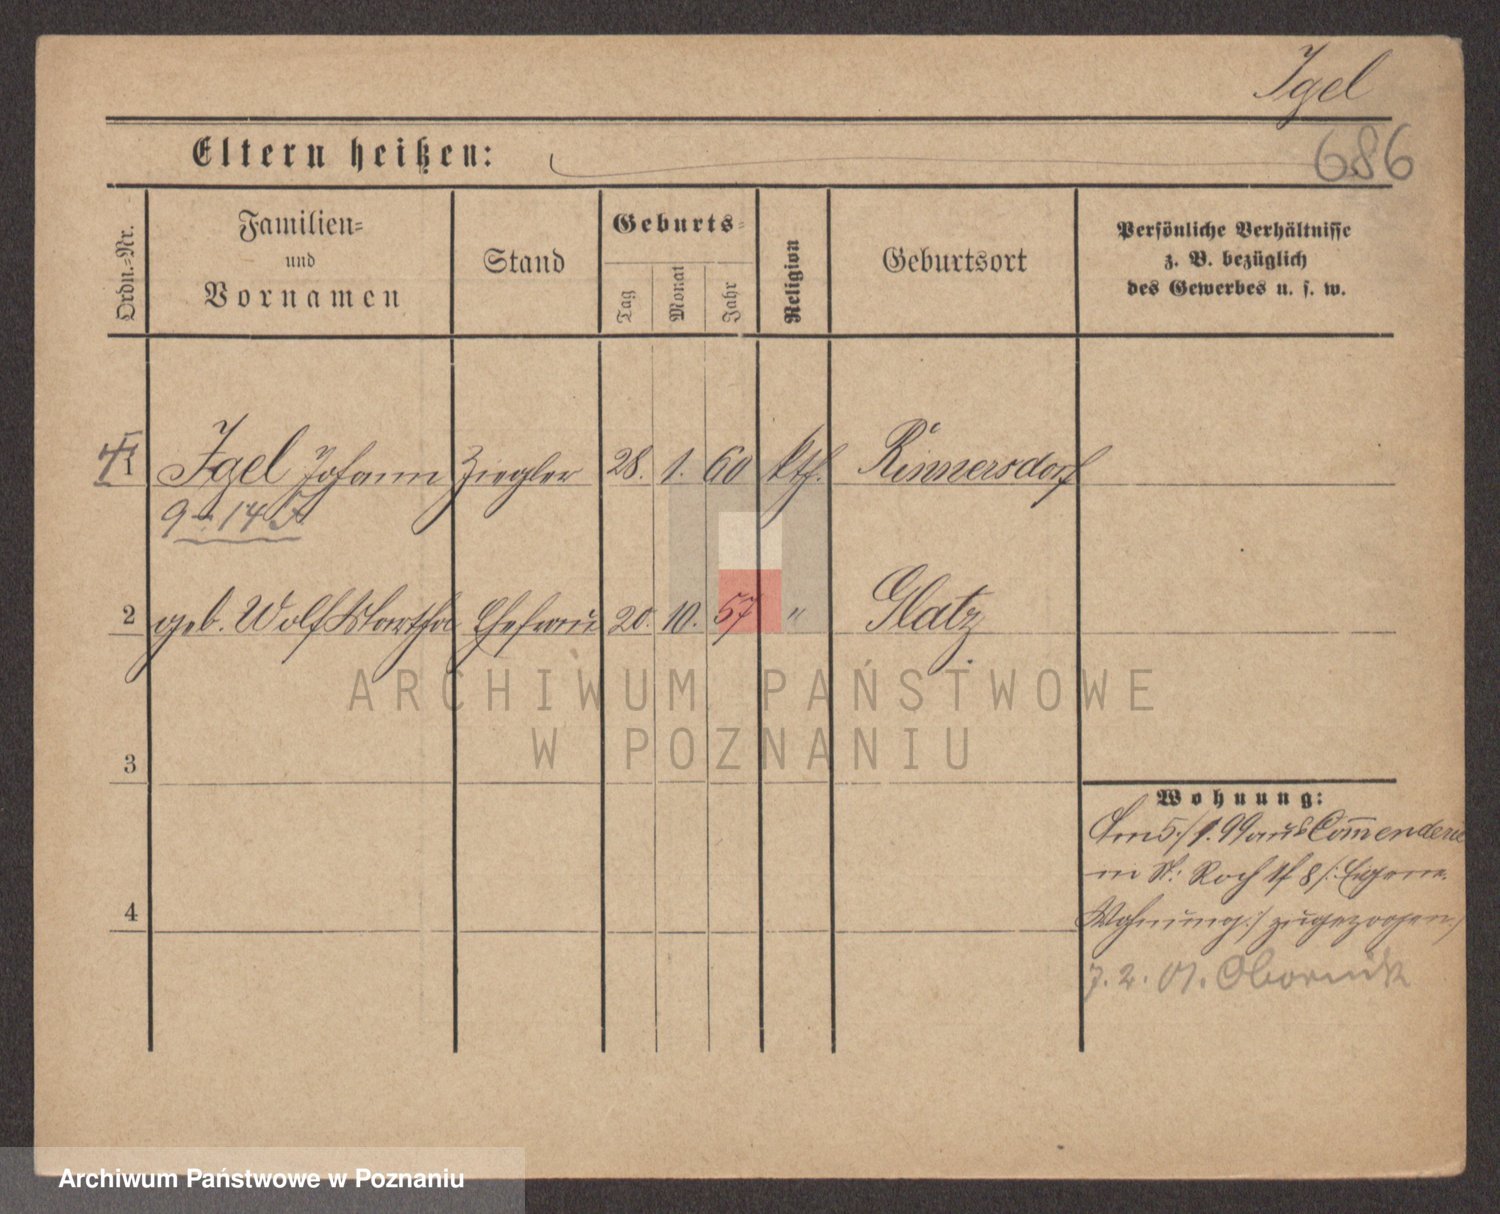 Igel
686
Eltern heißen:
Ordn.-Nr.
Familien-
und
Vornamen
Stand
Geburts-
Tag
Monat
Jahr
Religion
Geburtsort
Persönliche Verhältnisse
z. B. bezüglich
des Gewerbes u. s. w.
1 Igel Johann Ziegler 28. 1. 60 kth. Rinnersdorf
9 - 14
2 geb. Wolf Martha Ehefrau 20. 10. 57 " Glatz
ARCHIWUM PAŃSTWOWE
W POZNANIU
3
Wohnung:
Am 5/1. 99 aus Commenderie
in St. Roch 8
Wohnung/ zugezogen
4
7. 2. 01. Obornik
Archiwum Państwowe w Poznaniu